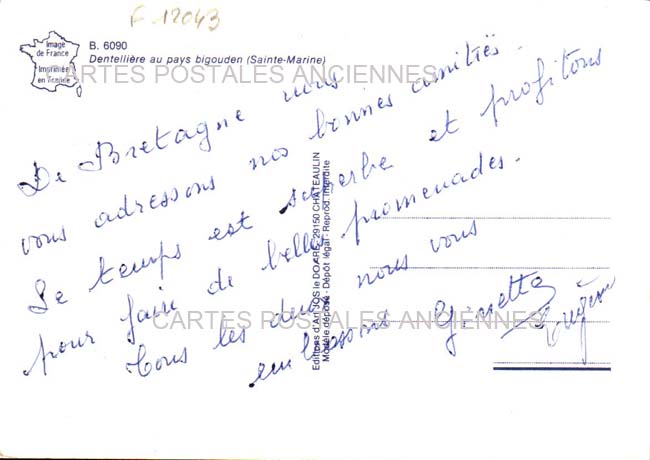 F 12043
Image
de France
Imprimée
en France
B. 6090
Dentellière au pays bigouden (Sainte-Marine)
CARTES POSTALES ANCIENNES
De Bretagne nous
vous adressons nos bonnes amitiés.
Le temps est superbe et profitons
pour faire de belles promenades.
Tous les deux nous vous
embrassons Ginette
Editions d'Art JOS le DOARÉ, 29150 CHATEAULIN
Modèle déposé - Dépôt légal - Reprod. interdite
CARTES POSTALES ANCIENNES